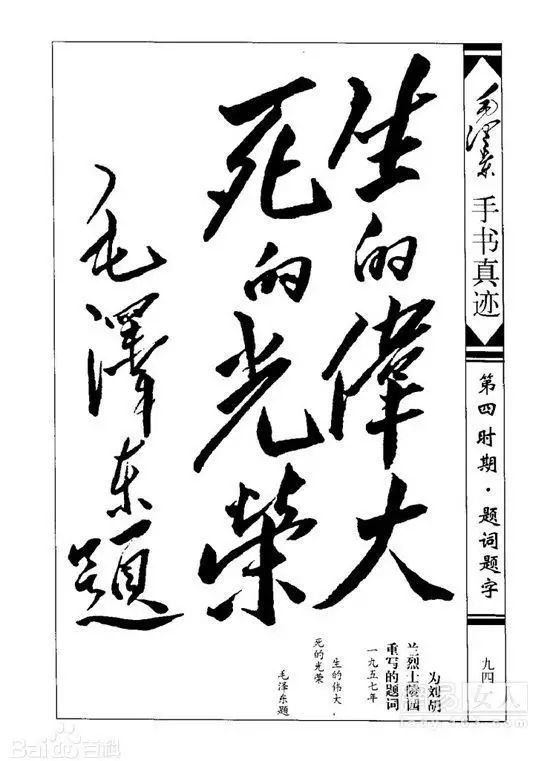 生的偉大
死的光榮
毛澤东題
毛泽东
手书真迹
第四时期·题词题字
九四
为刘胡
兰烈士陵园
重写的题词
一九五七年
生的伟大，
死的光荣
毛泽东题
Bai 百科